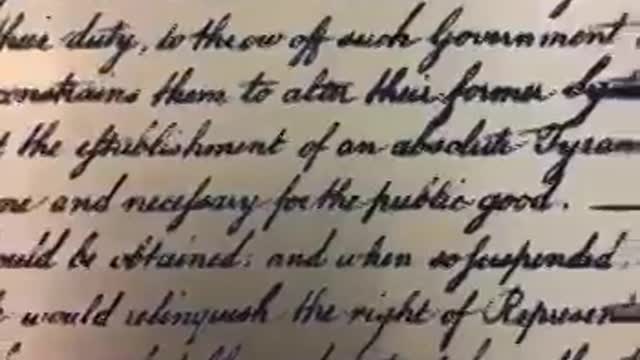 their duty, to throw off such Government
constrains them to alter their former Sy
the establishment of an absolute Tyran
and necessary for the public good.
ould be obtained; and when so suspended,
would relinquish the right of Represen